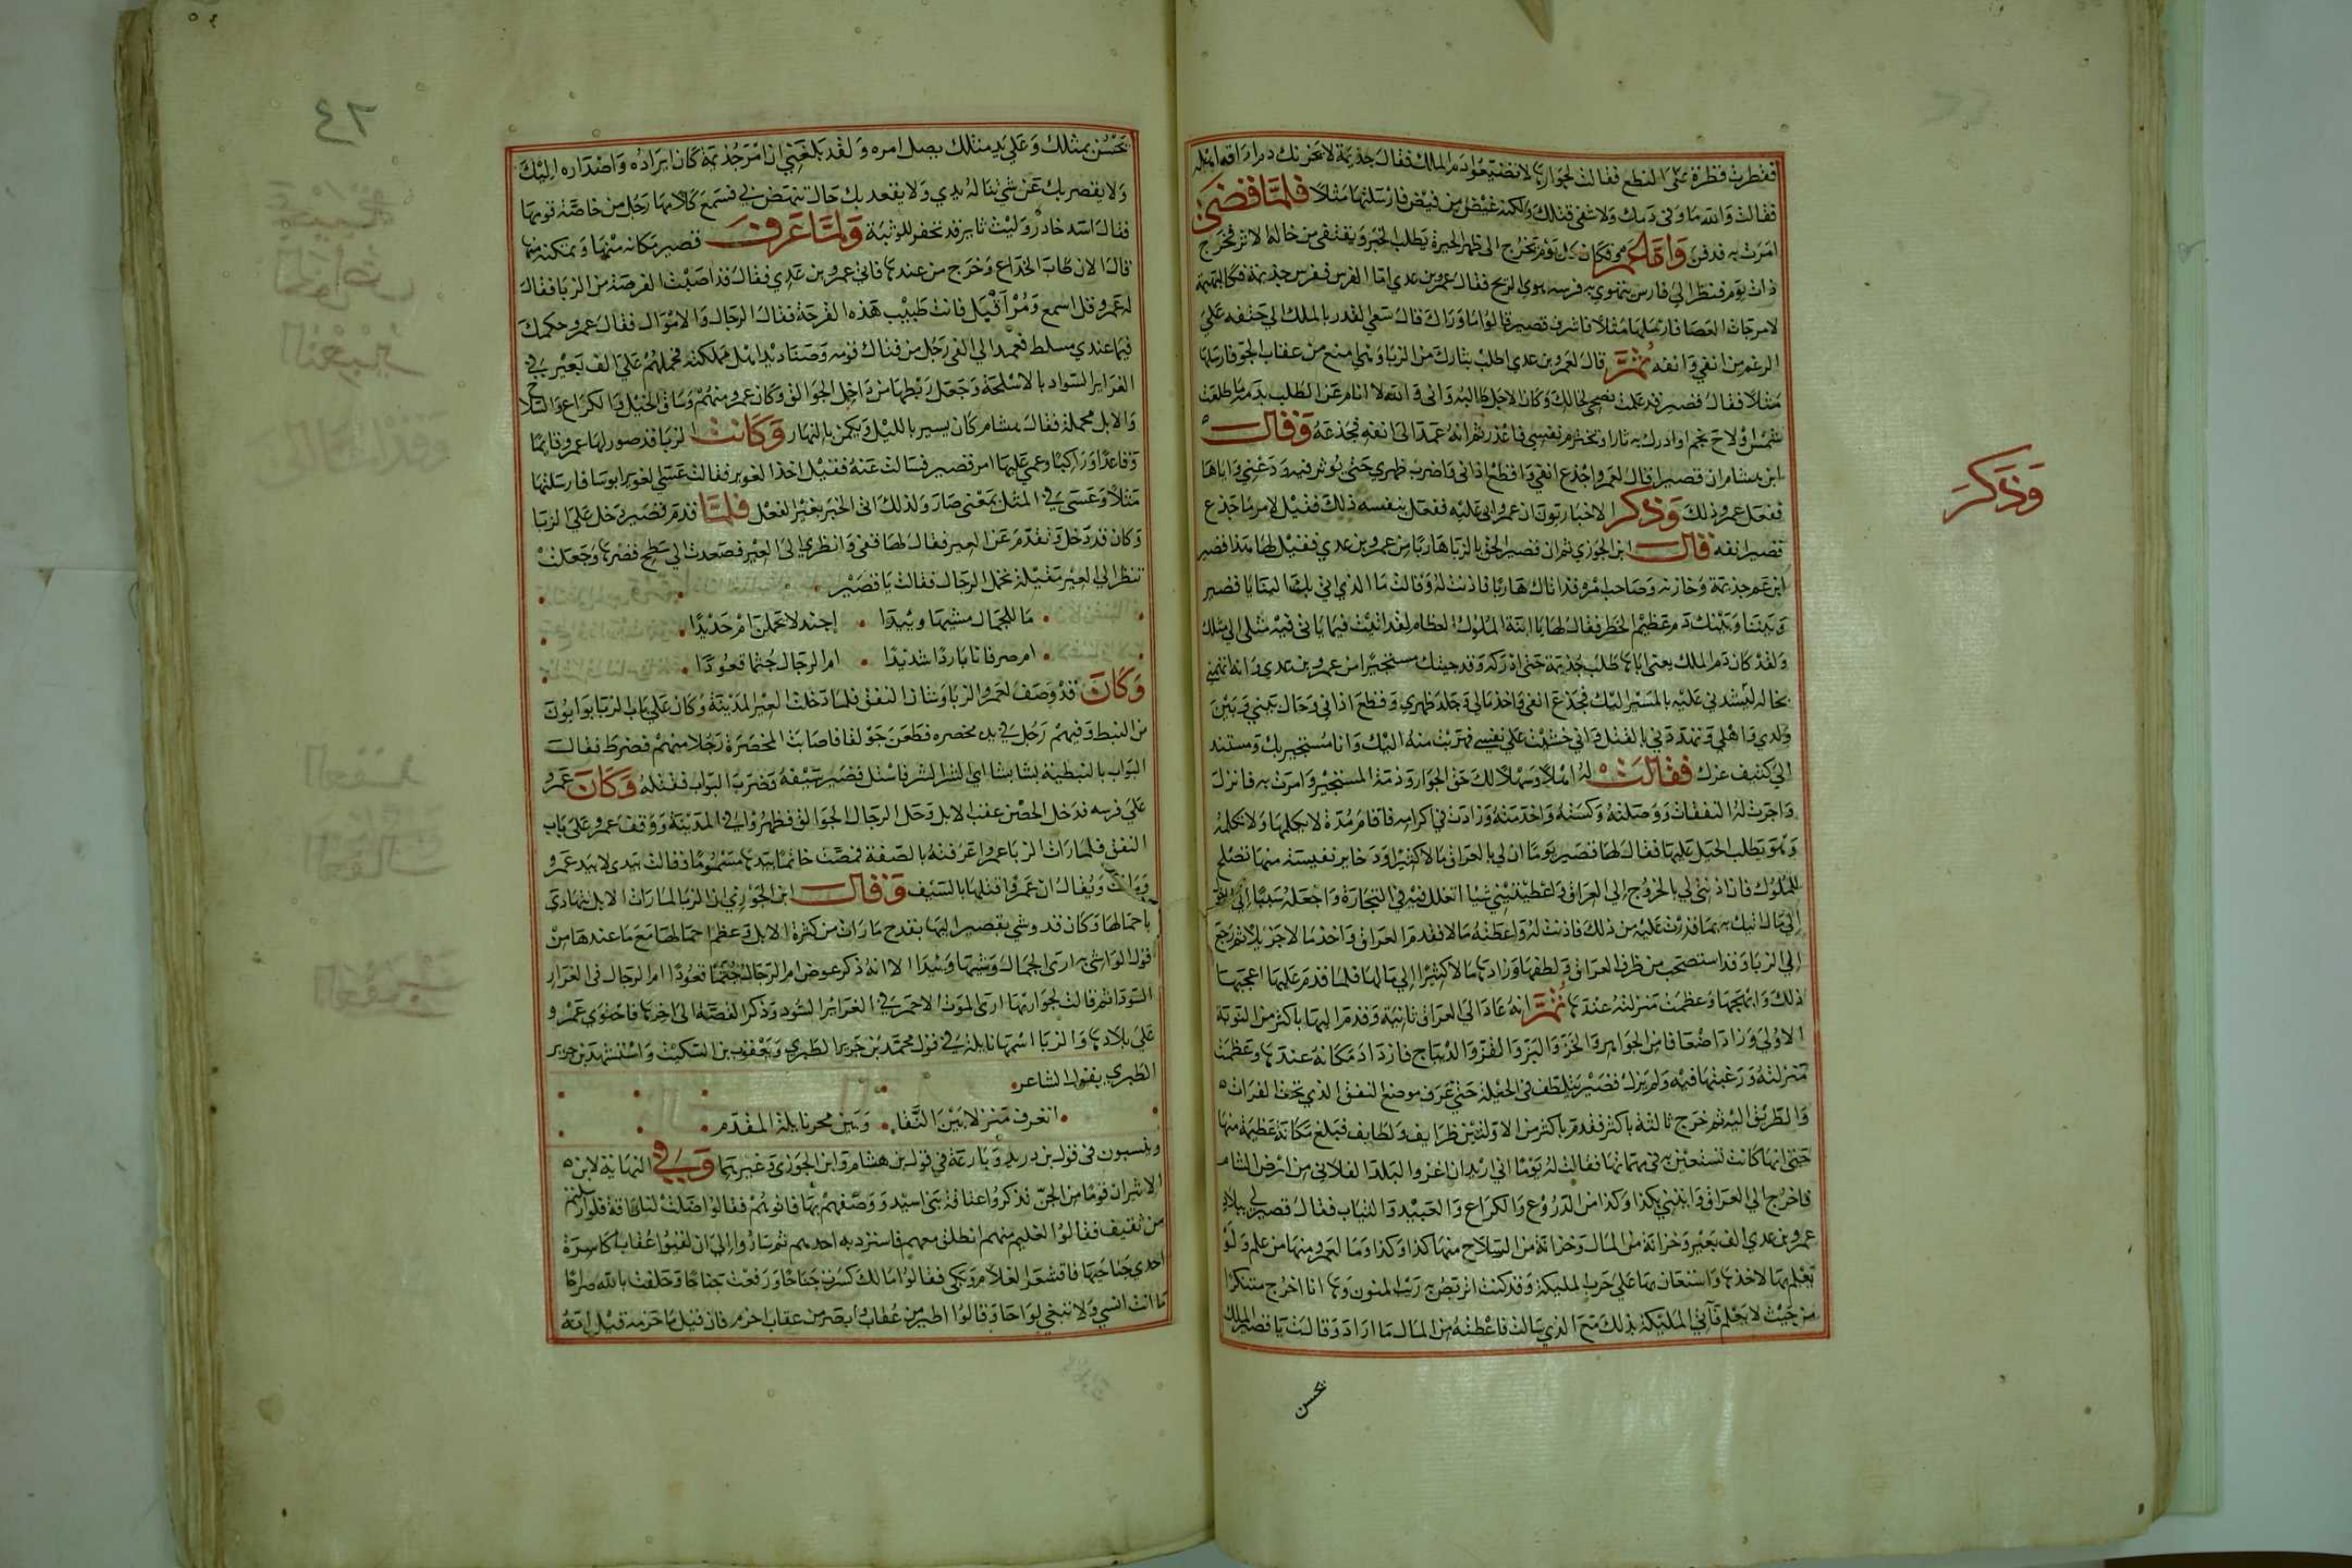 فقطرت قطرة على النطع فقالت لجواريها لا تضيعوا دم الملك فقال جذيمة لا يحزنك دم اراقه اهله
فقالت والله ما وفى دمك ولا شفى قتلك ولكنه غيض من فيض فارسلتها مثلا فلمَّا قضى
امرت به فدفن وامَّا عمرو فكان كل يوم يخرج الى ظهر الحيرة يطلب الخبر ويقتفى من خاله الاثر فخرج
ذات يوم فنظر الى فارس يهوي به فرسه هوي الريح فقال عمرو بن عدي اما الفرس ففرس جذيمة
لامر جات العصا فارسلها مثلا فاشرف قصير قالوا ما وراك قال سعي القدر بالملك الى حتفه على
الرغم من انفي وانفه ثمَّ قال لعمرو بن عدي اطلب بثارك من الزبا وهي امنع من عقاب الجو فارسلها
مثلا فقال قصير قد علمت نصحي لخالك وكان الاجل طالبه وانى والله لا انام عن الطلب بدمه ما طلعت
شمس ولاح نجم او ادرك به ثارا وتخترم نفسي فاعذر ثم انه عمد الى انفه فجدعه وقال
ابن هشام ان قصيرا قال لعمرو اجدع انفي واقطع اذانى واضرب ظهري حتى توثر فيه ودعني واياها
ففعل عمرو ذلك وذكر الاخباريون ان عمروا ابى عليه ففعل بنفسه ذلك فقيل لامر ما جدع
قصير انفه قال ابن الجوزي ثم ان قصيرا لحق بالزبا هاربا من عمرو بن عدي فقيل لها هذا قصير
ابن عم جذيمة وخازنه وصاحب امره قد اتاك هاربا فاذنت له وقالت ما الذي اتى بك الينا يا قصير
وبيننا وبينك دم عظيم الخطر فقال لها يا ابنة الملوك العظام لقد اتيت فيما ياتى فيه مثلى الى مثلك
ولقد كان دم الملك يعنى اباها طلب جذيمة حتى ادركه وقد جيتك مستجيرا من عمرو بن عدي وانه اتهمني
بخاله لمشورتي عليه بالمسير اليك فجدع انفى واخذ مالي وجلد ظهري وقطع اذانى وحال بيني وبين
ولدي واهلي وتهددني بالقتل وانى خشيت على نفسي فهربت منه اليك وانا مستجير بك ومستند
الى كنف عزك فقالت له اهلا وسهلا لك حق الجوار وذمة المستجير وامرت به فانزل
واجرت له النفقات ووصلته وكسته واخدمته وزادت في اكرامه فاقام مدة لا يكلمها ولا تكلمه
وهو يطلب الحيل عليها فقال لها قصير يوما ان لي بالعراق مالا كثيرا وذخاير نفيسة مما تصلح
للملوك فان اذنت لي بالخروج الى العراق واعطيتيني شيا اتعلل فيه في التجارة واجعله سببا الى
الى مالى اتيك به بما قدرت عليه من ذلك فاذنت له واعطته مالا فقدم العراق واخذ مالا جزيلا ثم رجع
الى الزبا وقد استصحب من ظرف العراق ولطفها وزادها مالا كثيرا الى مالها فلما قدم عليها اعجبها
ذلك وابهجها وعظمت منزلته عندها ثمَّ انه عاد الى العراق ثانية وقدم اليها باكثر من النوبة
الاولى وزاد اضعافا من الجواهر والخز والبز والقز والديباج فازداد مكانه عندها وعظمت
منزلته ورغبتها فيه ولم يزل قصير يتلطف في الحيلة حتى عرف موضع النفق الذي تحت الفرات
والطريق اليه ثم خرج ثالثة باكثر فقدم باكثر من الاولتين ظرايف ولطايف فبلغ مكانة عظيمة منها
حتى انها كانت تستعين به فى مهماتها فقالت له يوما انى اريد ان اغزو البلد الفلانى من ارض الشام
فاخرج الى العراق وايتيني بكذا وكذا من الدروع والكراع والعبيد والثياب فقال قصير لي ببلاد
عمرو بن عدي الف بعير وخزانة من المال وخزانة من السلاح منها كذا وكذا وما لعمرو منها من علم ولو
يعلم بها لاخذها واستعان بها على حرب المليكة وقد كنت اتربص به ريب المنون وها انا اخرج متنكرا
من حيث لا يعلم فآتي المليكة بذلك مع الذي سالت فاعطته من المال ما اراد وقالت يا قصير الملك
يحسن
وذكر
٦٤
يحسن بمثلك وعلى يد مثلك يصل امره ولقد بلغني ان امر جذيمة كان ايراده واصداره اليك
ولا يقصر بك عن شي تناله يدي ولا يقعد بك حال تنهض بي فسمع كلامها رجل من خاصة قومها
فقال اسد خادر وليث ثاير قد تحفز للوثبة ولمَّا عرف قصير مكانه منها وتمكنه منها
قال الان طاب الخداع وخرج من عندها فاتى عمرو بن عدي فقال قد اصبت الفرصة من الزبا فقال
له عمرو قل اسمع ومر اقبل فانت طبيب هذه القرحة فقال الرجال والاموال فقال عمرو حكمك
فيما عندي مسلط فعمد الى الفى رجل من فتاك قومه وصناديد اهل مملكته فحملهم على الف بعير في
الغراير السواد بالاسلحة وجعل ربطها من داخل الجوالق وكان عمرو منهم وساق الخيل والكراع والسلاح
والابل محملة فقال هشام كان يسير بالليل ويكمن بالنهار وكانت الزبا قد صور لها عمرو قائما
وقاعدا وراكبا وعمي عليها امر قصير فسالت عنه فقيل اخذ الغوير فقالت عسى الغوير ابوسا فارسلتها
مثلا وعسى في المثل بمعنى صار ولذلك اتى الخبر بغير الفعل فلمَّا قدم قصير دخل على الزبا
وكان قد دخل وتقدم عن العير فقال لها قفى وانظري الى العير فصعدت الى سطح قصرها وجعلت
تنظر الى العير مقبلة تحمل الرجال فقالت يا قصير
ما للجمال مشيها وييدا اجندلا يحملن ام حديدا
ام صرفانا باردا شديدا ام الرجال جثما قعودا
وكان قد وصف لعمرو الزبا وشان النفق فلما دخلت العير المدينة وكان على باب الزبا بوابون
من النبط وفيهم رجل في يده مخصره فطعن جولقا فاصابت المخصرة رجلا منهم فضرط فقال
البواب بالنبطية بشا بشا اي الشر الشر فاستل قصير سيفه وضرب البواب فقتله وكان عمرو
على فرسه فدخل الحصن عقب الابل وحل الرجال الجوالق فظهروا في المدينة ووقف عمرو على باب
النفق فلما رات الزبا عمروا عرفته بالصفة فمصت خاتما بيدها مسموما فقالت بيدى لا بيد عمرو
وماتت ويقال ان عمروا قتلها بالسيف وقال ابن الجوزي ان الزبا لما رات الابل تتهادى
باحمالها وكان قد وشي بقصير اليها بقدح ما رات من كثرة الابل وعظم احمالها مع ما عندها من
قول الواشى به ارى الجمال ومشيها وييدا الا انه ذكر عوض ام الرجال جثما قعودا ام الرجال فى الغرار
السود ثم قالت لجواريها ارى الموت الاحمر في الغراير السود وذكر القصة الى اخرها فاحتوي عمرو
على بلادها والزبا اسمها نايلة في قول محمد بن جرير الطبري ويعقوب بن السكيت واستشهد بن جرير
الطبري بقول الشاعر
اتعرف منزلا بين النقا وبين مجر نايلة القديم
وينسبون فى قول بن دريد وبارعة في قول بن هشام وابن الجوزى وغيرهما وفي النهاية لابن
الاثير ان قوما من الجن تذاكروا عيافة بنى اسد ووصفهم بها فاتوهم فقالوا ضلت لنا ناقة فلو ارسلتم
من ثقيف فقالوا لغليم منهم انطلق معهم فاستردفه احدهم ثم ساروا الى ان لقيوا عقابا كاسرة
احدي جناحيها فاقشعر الغلام وبكى فقالوا مالك كسرت جناحا ورفعت جناحا وحلفت بالله صراحا
ما انت انسي ولا تبغي لواحا وقالوا اطير من عقاب وابصر من عقاب احزم فان قيل ما حزمه قيل انه